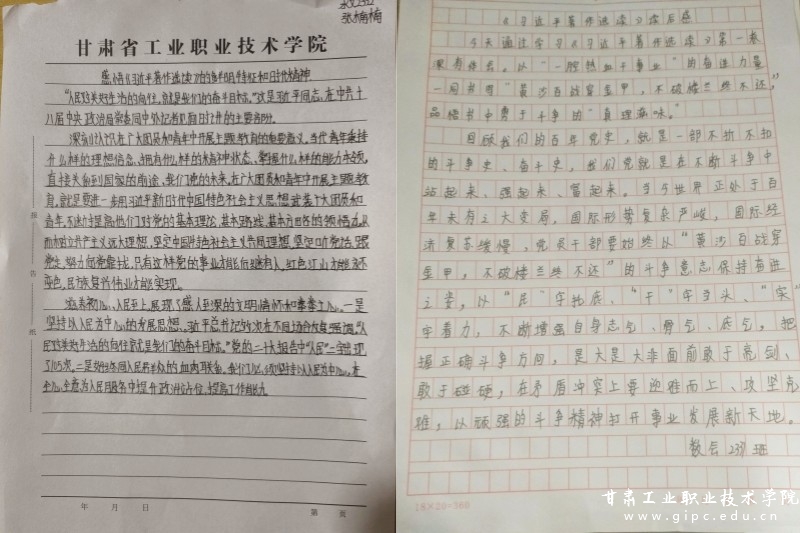 张楠楠
甘肃省工业职业技术学院
感悟《习近平著作选读》的鲜明特征和时代精神
"人民对美好生活的向往,就是我们的奋斗目标。"这是习近平同志,在中共十
八届中央政治局常委同中外记者见面时讲的主要部分。
深刻认识在广大团员和青年中开展主题教育的重要意义。当代青年秉持
什么样的理想信念、拥有什么样的精神状态、掌握什么样的能力本领,
直接关系到国家的前途、我们党的未来。在广大团员和青年中开展主题教
育,就是要进一步用习近平新时代中国特色社会主义思想武装广大团员和
青年,不断提高他们对党的基本理论、基本路线、基本方略的领悟力,从
而树立共产主义远大理想,坚定中国特色社会主义共同理想,坚定听党话、跟
党走,努力向党靠拢,只有这样党的事业才能后继有人,红色江山才能永不
变色,民族复兴伟业才能实现。
人民至上,展现了感人至深的文明情怀和
坚持以人民为中心的发展思想。习近平总书记多次在不同场合反复强调,"人
民对美好生活的向往就是我们的奋斗目标。"党的二十大报告中"人民"一字出现
了105次。二是始终同人民群众的血肉联系。我们必须坚持以人民为中心,在
全心全意为人民服务中提升政治站位,提高工作能力
报
告
纸
年 月 日 第 页
《习近平著作选读》读后感
今天通过学习《习近平著作选读》第一卷
深有体会。以"一腔热血干事业"的奋进力量
一同书写"黄沙百战穿金甲,不破楼兰终不还",
品悟书中勇于斗争的"真理滴味"。
回顾我们的百年党史,就是一部不折不扣
的斗争史、奋斗史,我们党就是在不断斗争中
站起来、强起来、富起来。当今世界正处于百
年未有之大变局,国际形势复杂严峻,国际经
济复苏缓慢,党员干部要始终以"黄沙百战穿
金甲,不破楼兰终不还"的斗争意志保持奋进
之姿,以"民"字托底、"干"字当头、"实"
字着力,不断增强自身志气、骨气、底气,把
握正确斗争方向,是大是大非面前敢于亮剑、
敢于碰硬,在矛盾冲突上要迎难而上、攻坚克
难,以顽强的斗争精神打开事业发展新天地。
数会2331班
18×20=360
甘肃工业职业技术学院
www.gipc.edu.cn